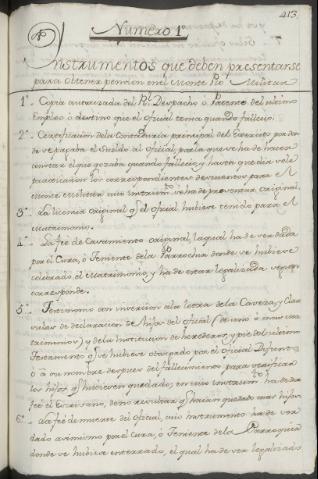 413
Numero 1º
Instrumentos que deben presentarse
para obtener pension en el Monte Pío Militar
1º Copia autorizada del Rl Despacho ó Patente del ultimo
Empleo ó destino que el oficial tenia quando fallecio.
2º Certificacion de la Contaduria principal del Exercito por don
de se pagaba el Sueldo al oficial, por la que se ha de hacer
constar el que gozaba quando fallecio, y haver que dan vele
practicado los correspondientes descuentos para el
Monte Militar cuio instrumto se ha de presentar original
3º La licencia original qe el oficial huviere tenido para el
Matrimonio.
4º La fee de Casamiento original, la qual ha de ser dada
por el Cura, ó Teniente de la Parrochia donde se huviere
celebrado el Matrimonio y ha de estar legalizada segun
corresponde.
5º Testimonio con insercion ala letra de la Caveza, y Clau
sulas de declaracion de hijos del oficial (de uno ó mas ma
trimonios) y de la institucion de herederos, y pie del ultimo
Testamento qe se huviere otorgado por el oficial Difunto
ó a su nombre despues del fallecimiento para verificar
los hijos qe huvieren quedado; en cuio instrumto ha de dar
fee el Escrivano, de no resultar qe haian quedado mas hijos
6º La fee de muerte del oficial, cuio instrumento ha de ser
dado asimismo por el Cura, ó Teniente de la Parroquia
donde se huviere enterrado, el qual ha de ser legalizado